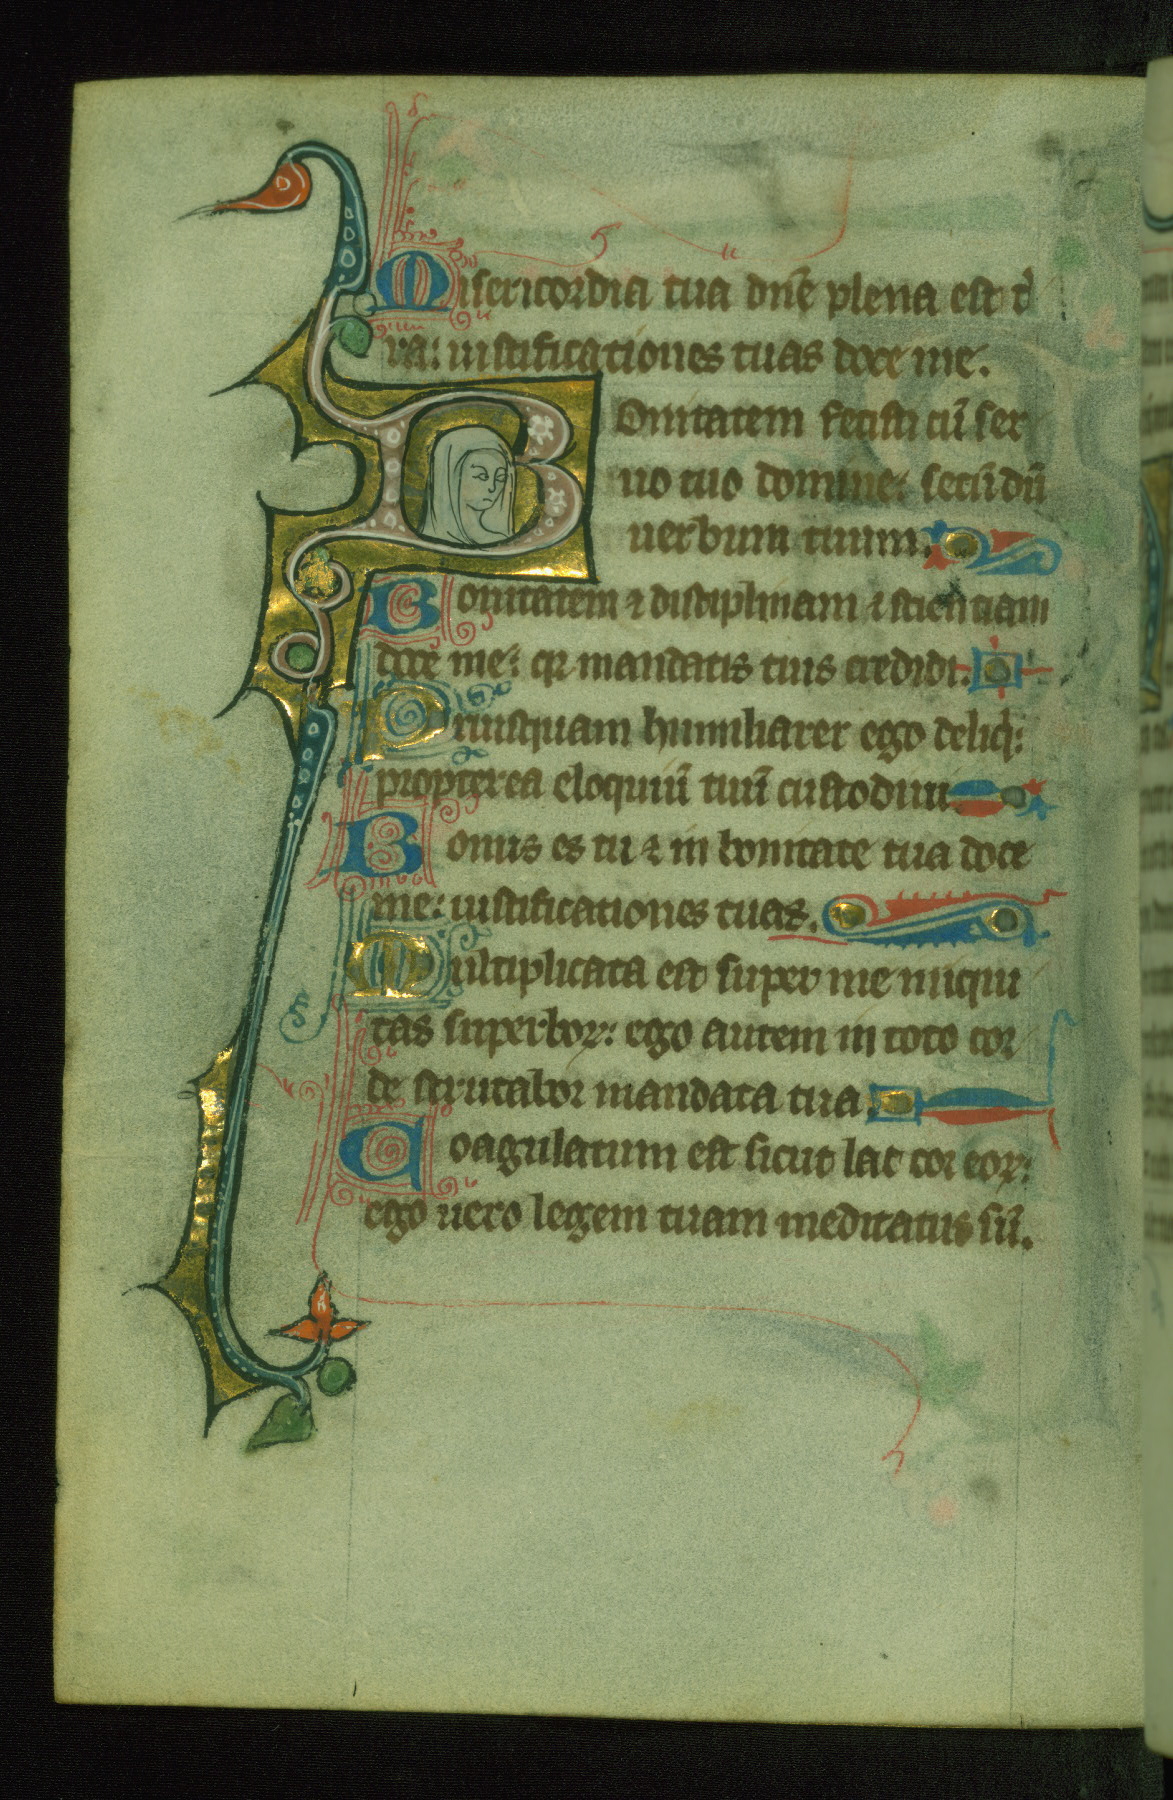 Misericordia tua dnē plena est t'
ra: iustificationes tuas doce me.
Bonitatem fecisti cū ser
uo tuo domine: secūdū
uerbum tuum.
Bonitatem ⁊ disciplinam ⁊ scientiam
doce me: qr mandatis tuis credidi.
Priusquam humiliarer ego deliq̄:
propterea eloquiū tuū custodiui
Bonus es tu ⁊ in bonitate tua doce
me: iustificationes tuas.
Multiplicata est super me iniqui
tas superboꝝ: ego autem in toto cor
de scrutabor mandata tua.
Coagulatum est sicut lac cor eoꝝ:
ego uero legem tuam meditatus sū.